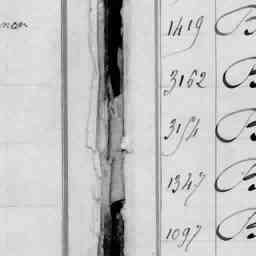 1419 B
3162 B
3154 B
1347 B
1097 B